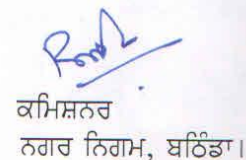 ਕਮਿਸ਼ਨਰ
ਨਗਰ ਨਿਗਮ, ਬਠਿੰਡਾ।